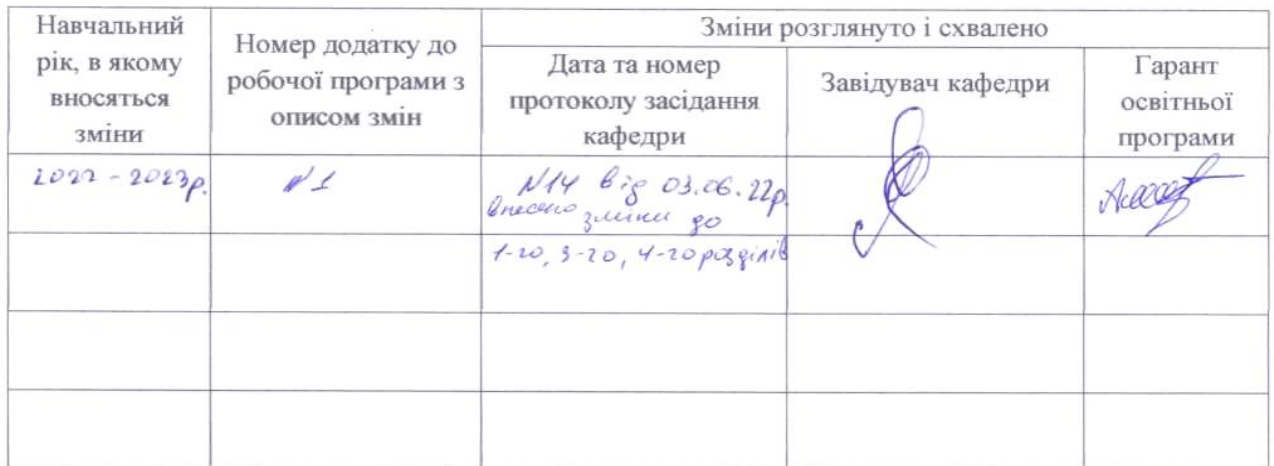 Навчальний
рік, в якому
вносяться
зміни
Номер додатку до
робочої програми з
описом змін
Зміни розглянуто і схвалено
Дата та номер
протоколу засідання
кафедри
Завідувач кафедри
Гарант
освітньої
програми
2022 - 2023р.
№1
№14 від 03.06.22р.
внесено зміни до
1-го, 3-го, 4-го розділів